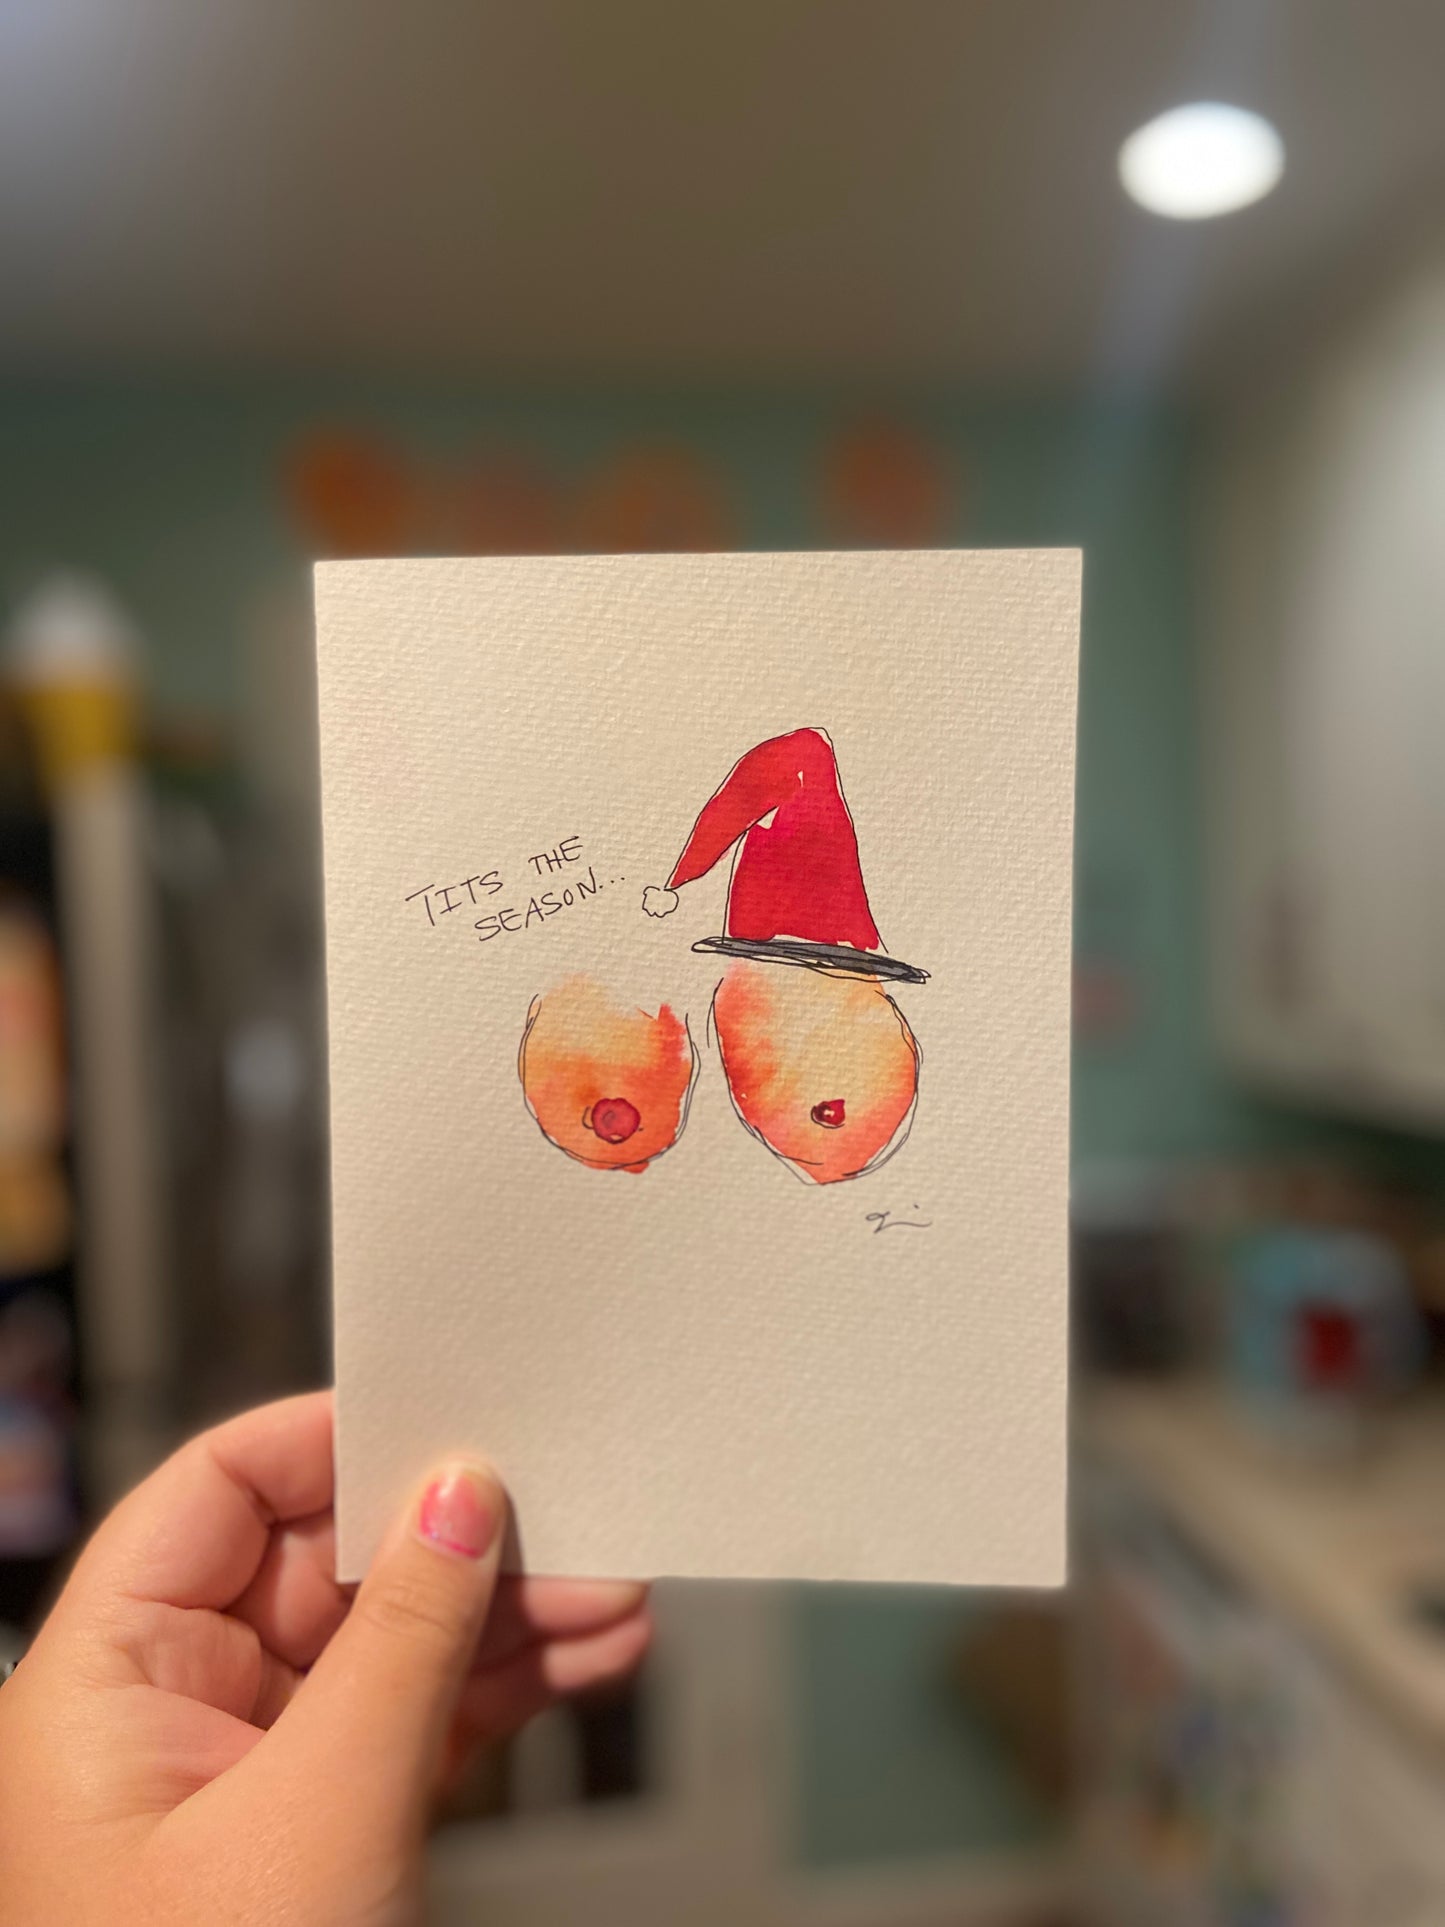 TITS THE
SEASON...